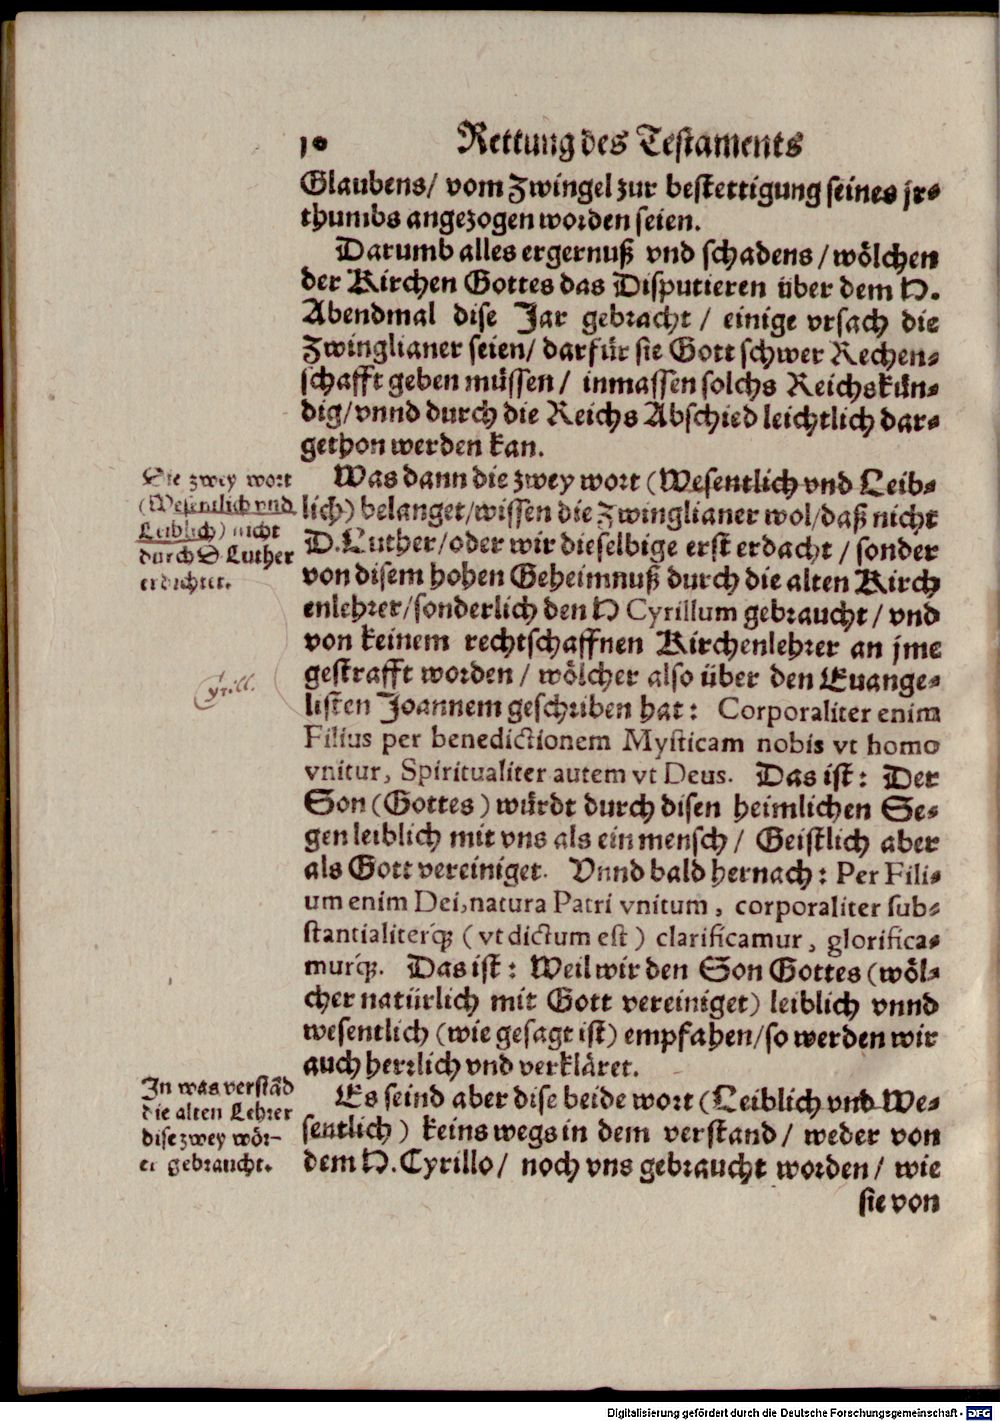 10 Rettung des Testaments
Glaubens/ vom Zwingel zur bestettigung seines jr-
thumbs angezogen worden seien.
Darumb alles ergernuß vnd schadens / wölchen
der Kirchen Gottes das Disputieren über dem H.
Abendmal dise Jar gebracht / einige vrsach die
Zwinglianer seien/ darfür sie Gott schwer Rechen-
schafft geben müssen / inmassen solchs Reichskün-
dig/vnnd durch die Reichs Abschied leichtlich dar-
gethon werden kan.
Die zwey wort
(Wesentlich vnd
Leiblich) nicht
durch D. Luther
erdichtet.
Was dann die zwey wort (Wesentlich vnd Leib-
lich) belanget/wissen die Zwinglianer wol/daß nicht
D. Luther/oder wir dieselbige erst erdacht / sonder
von disem hohen Geheimnuß durch die alten Kirch
enlehrer/sonderlich den H Cyrillum gebraucht / vnd
von keinem rechtschaffnen Kirchenlehrer an jme
gestrafft worden / wölcher also über den Euange-
Cyrill.
listen Joannem geschriben hat: Corporaliter enim
Filius per benedictionem Mysticam nobis vt homo
vnitur, Spiritualiter autem vt Deus. Das ist: Der
Son (Gottes) würdt durch disen heimlichen Se-
gen leiblich mit vns als ein mensch / Geistlich aber
als Gott vereiniget. Vnnd bald hernach: Per Fili-
um enim Dei, natura Patri vnitum, corporaliter sub-
stantialiterq́; (vt dictum est) clarificamur, glorifica-
murq́;. Das ist: Weil wir den Son Gottes (wöl-
cher natürlich mit Gott vereiniget) leiblich vnnd
wesentlich (wie gesagt ist) empfahen/so werden wir
auch herrlich vnd verkläret.
In was verstãd
die alten Lehrer
dise zwey wör-
er gebraucht.
Es seind aber dise beide wort (Leiblich vnd We-
sentlich) keins wegs in dem verstand / weder von
dem H. Cyrillo/ noch vns gebraucht worden / wie
sie von
Digitalisierung gefördert durch die Deutsche Forschungsgemeinschaft - DFG